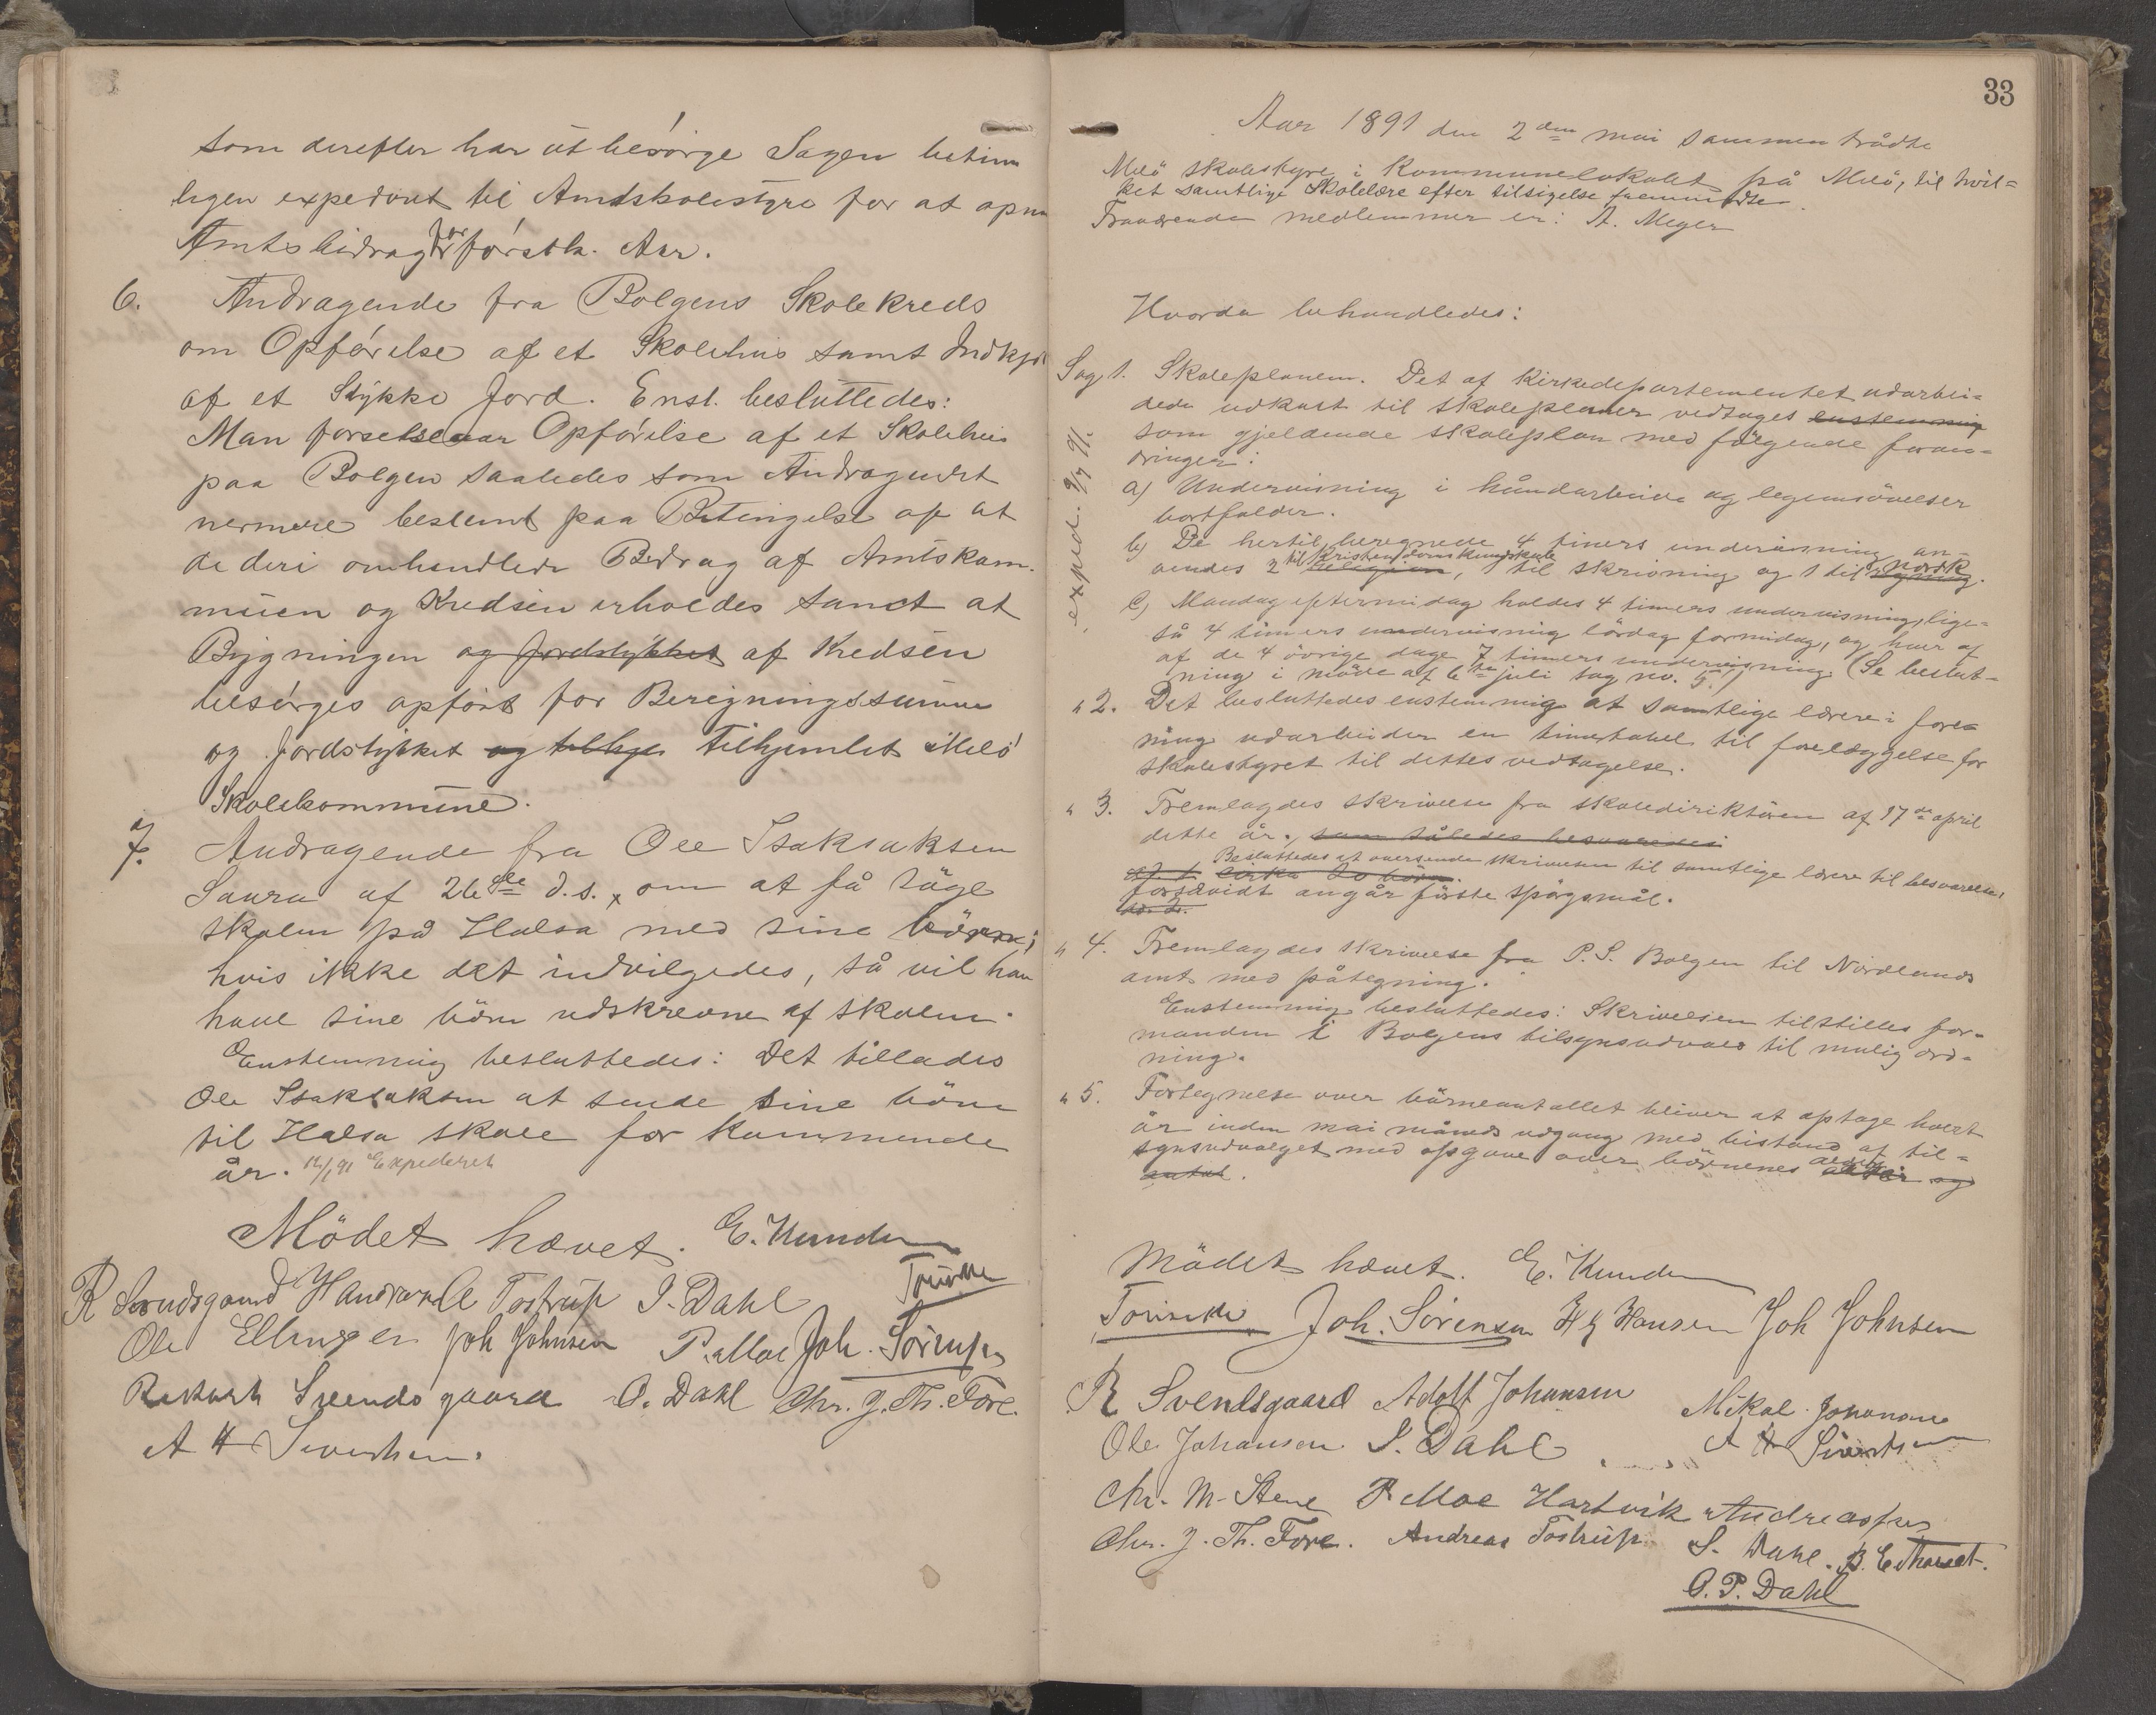 som derefter har at besörge Sagen betim
ligen expedert til Amtskolestyre for at opnaa
Amtsbidrag for förstk. Aar.
6. Andragende fra Bolgens Skolekreds
om Opförelse af et Skolehus samt Indkjöb
af et Stykke Jord. Enst. besluttedes:
Man Opförelse af et Skolehus
paa Bolgen saaledes som Andragendet
nermere bestemt paa Betingelse af at
de deri omhandlede Bidrag af Amtskom-
muen og Kredsen erholdes samt at
Bygningen og Jordstykket af Kredsen
besörges opfört for Beregningssumme
og Jordstykket og tillige tilhjemlet Melö
Skolekommune.
7. Andragende fra Ole Isaksaksen
Saura af 26de d.s., om at få söge
skolen på Halsa med sine börn;
hvis ikke det indvilgedes, så vil han
have sine börn udskrevne af skolen.
Enstemmig besluttedes: Det tillades
Ole Isaksaksen at sende sine börn
til Halsa skole for kommende
år. 12/1 91 Expederet
Mödet hævet. E. Kunden
R Svendsgaard A Tostrup I. Dahl
Ole Ellingsen Joh Johnsen P. Moe Joh. Sörensen
Rikhart Svendsgaard O. Dahl Chr. J. Th. Fore.
A H Sivertsen.
33
Aar 1891 den 2den mai sammentrådte
Melö skolestyre i Kommunelokalet på Melö, til hvil=
ket samtlige Skolelære efter tilsigelse fremmödte
Fraværende medlemmer er: A. Meyer
Hvorda behandledes:
Sag 1. Skoleplanen. Det af Kirkedepartementet udarbei=
dede udkast til skoleplaner vedtoges enstemmig
som gjeldende skoleplan med fölgende foran=
dringer:
expid. 9/7 91.
a) Undervisning i håndarbeide og legemsövelser
bortfalder.
b) De hertil beregnede 4 timers undervisning an-
vendes 2 til kristendomskundskab religion, 1 til skrivning og 1 til norsk regning.
c) Mandag eftermidag holdes 4 timers undervisning, lige=
så 4 timers undervisning lördag formidag, og hver af
af de 4 övrige dage 7 timers undervisning. (Se beslut=
ning i möde af 6te juli sag no. 5.)
" 2. Det besluttedes enstemmig at samtlige lærere i fore=
ning udarbeider en timetabel til forelæggelse for
skolestyret til dettes vedtagelse.
" 3. Fremlagdes skrivelse fra skoledirektören af 17de april
dette år., som således besvaredes:
Besluttedes at oversende skrivelsen til samtlige lærere til besvarelse,
ad 1. cirka 20 börn.
forsåvidt angår förste spörgsmål.
" 4. Fremlagdes skrivelse fra P. S. Bolgen til Nordlands
amt med påtegning.
Enstemmig besluttedes: Skrivelsen tilstilles for=
manden i Bolgens tilsynsudvalg til mulig ord=
ning.
" 5. Fortegnelse over börneantallet bliver at optage hvert
år inden mai måneds udgang med bistand af til=
synsudvalget med opgave over börnenes alder og
antal.
Mödet hævet. E. Kunden
Joh. Sörensen Hansen Joh Johnsen
R Svendsgaard Adolf Johansen Mikal Johansen
Ole Johansen I. Dahl A H Sivertsen
Chr. M. Stene P Moe Hartvik Andreassen
Chr. J. Th. Fore. Andreas Tostrup S. Dahl.
O. P. Dahl